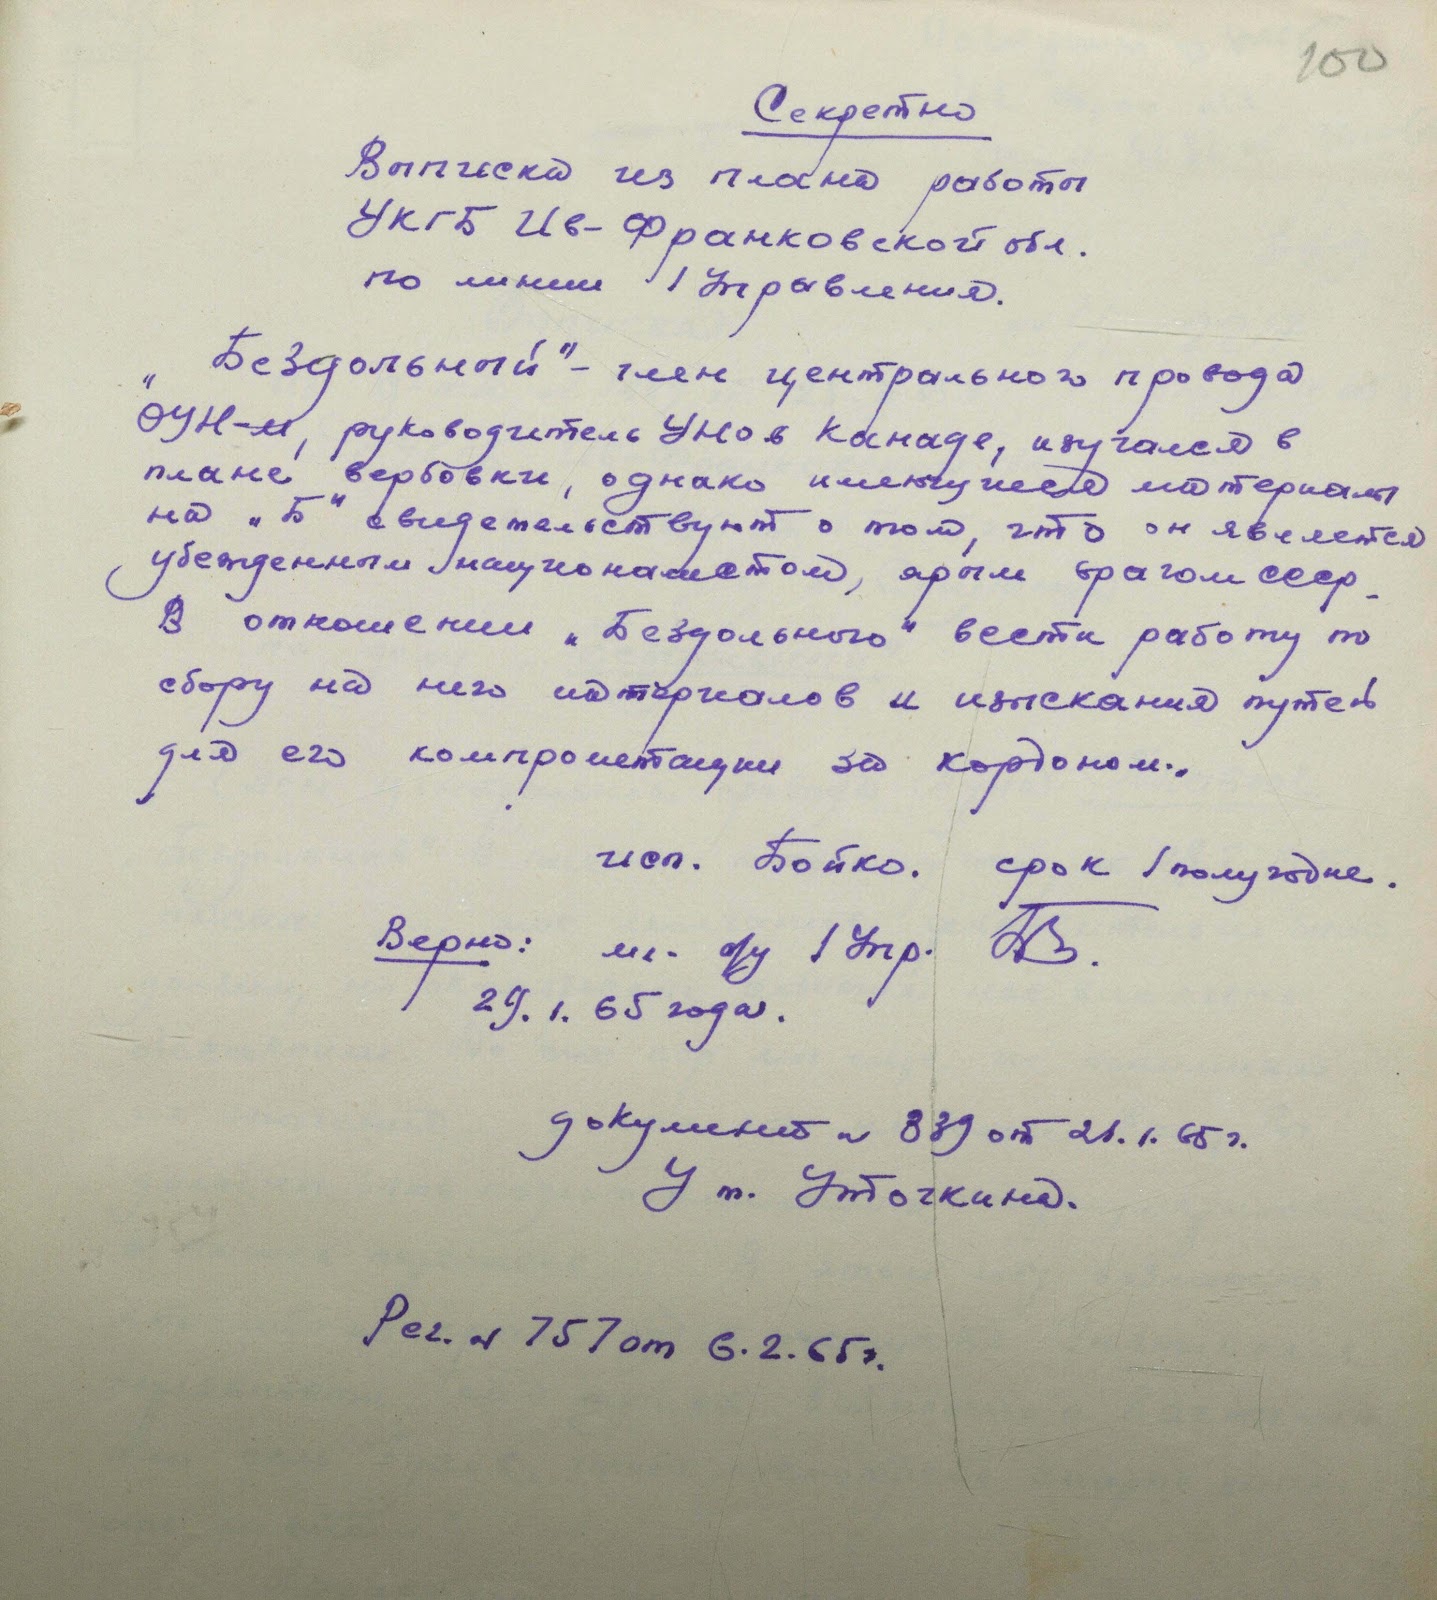 100
Секретно
Выписка из плана работы
УКГБ Ив-Франковской обл.
по линии 1 Управления.
„Бездольный" – член центрального провода
ОУН-м, руководитель УНО в Канаде, изучался в
плане вербовки, однако имеющиеся материалы
на „Б" свидетельствуют о том, что он является
убежденным националистом, ярым врагом СССР.
В отношении „Бездольного" вести работу по
сбору на него материалов и изыскания путей
для его компрометации за кордоном.
исп. Бойко. срок 1 полугодие.
Верно: м. о/у 1 Упр.
29.1.65 года.
документ N 839 от 21.1.65 г.
У т. Уточкина.
Рег. N 757 от 6.2.65 г.